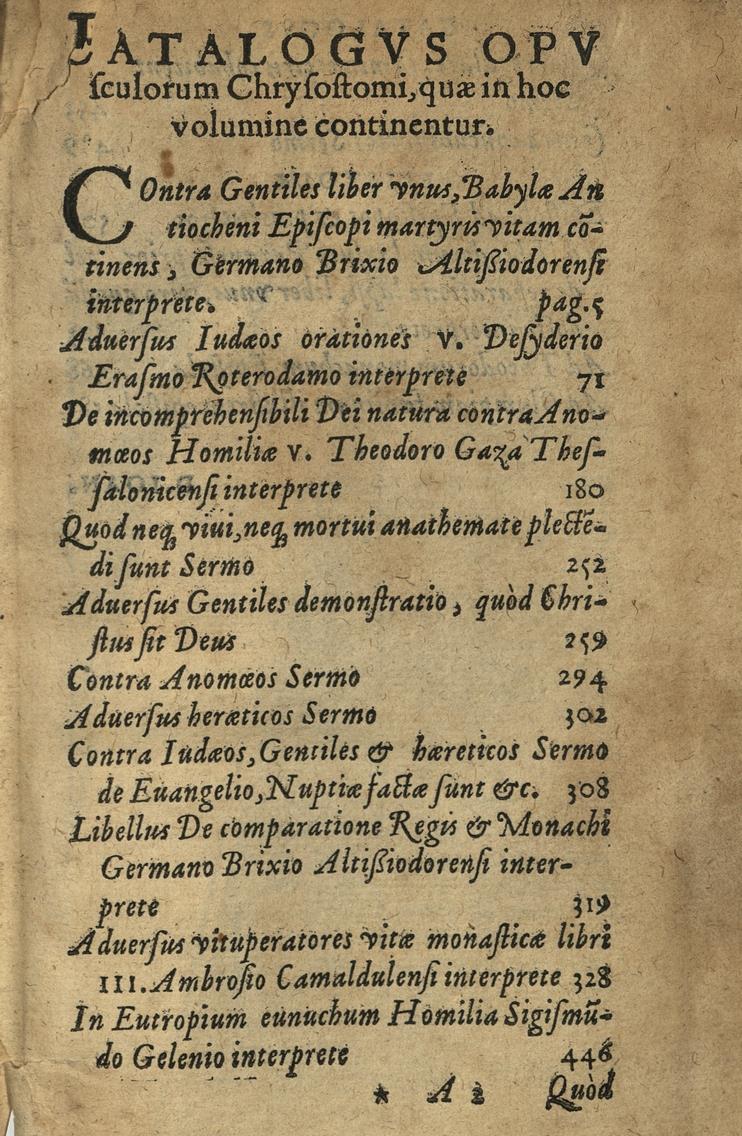 CATALOGVS OPV
ſculorum Chryſoſtomi, quæ in hoc
volumine continentur.
COntra Gentiles liber vnus, Babylæ An
tiocheni Epiſcopi martyris vitam cō-
tinens, Germano Brixio Altißiodorenſi
interprete. pag. 5
Aduerſus Iudæos orationes v. Deſyderio
Eraſmo Roterodamo interprete 71
De incomprehenſibili Dei natura contra Ano-
mœos Homiliæ v. Theodoro Gaza Theſ-
ſalonicenſi interprete 180
Quod neq; viui, neq; mortui anathemate plectē-
di ſunt Sermo 252
Aduerſus Gentiles demonſtratio, quòd Chri-
ſtus ſit Deus 259
Contra Anomœos Sermo 294
Aduerſus heræticos Sermo 302
Contra Iudæos, Gentiles & hæreticos Sermo
de Euangelio, Nuptiæ factæ ſunt &c. 308
Libellus De comparatione Regis & Monachi
Germano Brixio Altißiodorenſi inter-
prete 319
Aduerſus vituperatores vitæ monaſticæ libri
III. Ambroſio Camaldulenſi interprete 328
In Eutropium eunuchum Homilia Sigiſmū-
do Gelenio interprete 446
* A 2 Quòd